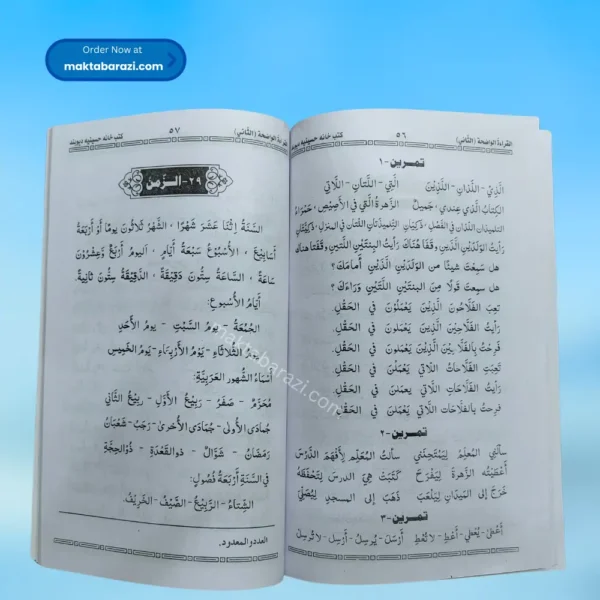 Order Now at
maktabarazi.com
القراءة الواضحة (الثاني) ٥٦ كتب خانه حسينيه ديوبند
تمرين - ١
الَّذِيْ - اللَّذَانِ - اللَّذَيْنِ الَّتِيْ - اللَّتَانِ - اللَّاتِيْ
الكِتابُ الَّذي عِندي، جَميلٌ الزَّهرةُ الَّتي في الأَصِيْصِ، حَمْرَاءُ
التلميذانِ اللَّذان في الفَصْلِ، ذَكِيَّانِ التِّلميذَتَانِ اللَّتان في المنزلِ، ذَكِيَّتَانِ
رَأَيْتُ الوَلَدَيْنِ الَّذَيْنِ وقَفَا هُنَاكَ رَأَيتُ البِنْتَيْنِ اللَّتَينِ وَقَفَتَا هناكَ
هل سَمِعتَ شيئًا من الوَلَدَينِ الَّذَينِ أَمامَكَ؟
هل سَمِعتَ قَولًا مِنَ البِنتَينِ اللَّتَيْنِ وَرَاءَكَ؟
تَعِبَ الفَلَّاحُونَ الَّذِيْنَ يَعْمَلُوْنَ في الحَقْلِ.
رَأَيتُ الفَلَّاحِيْنَ الَّذِيْنَ يَعْمَلُونَ في الحَقْلِ.
فَرِحتُ بالفَلَّاحِيْنَ الَّذِيْنَ يَعْمَلُوْنَ في الحَقْلِ.
تَعِبَتِ الفَلَّاحَاتُ اللَّاتي يَعْمَلْنَ في الحَقْلِ.
رَأَيتُ الفَلَّاحَاتِ اللَّاتي يعمَلنَ في الحَقْلِ.
فرِحتُ بالفلَّاحَات اللَّاتي يَعْمَلْنَ في الحَقْلِ.
تمرين - ٢
سأَلَني المُعلِّمُ لِيَمْتَحِنَنِي سألتُ المُعَلِّمَ لِأَفْهَمَ الدَّرْسَ
أَعْطَيْتُهُ الزَّهرةَ لِيَفْرَحَ كَتَبَتْ هِيَ الدرسَ لِتَحْفَظَهُ
خَرَجَ إلى المَيْدَانِ لِيَلْعَبَ ذَهَبَ إلى المسجدِ لِيُصَلِّيَ
تمرين - ٣
أَعْطَىٰ - يُعْطِي - أَعْطِ - لا تُعْطِ أَرْسَلَ - يُرسِلُ - أَرْسِلْ - لا تُرسِلْ
القراءة الواضحة (الثاني) ٥٧ كتب خانه حسينيه ديوبند
٢٩ - الزَّمَنُ
السَّنَةُ اِثْنَا عَشَرَ شَهْرًا، الشَّهْرُ ثَلَاثُونَ يومًا أَوْ أَرْبَعَةُ
أَسَابِيْعَ، الأُسْبُوعُ سَبْعَةُ أَيَّامٍ، اليومُ أَربَعٌ وعِشْرُونَ
سَاعَةً، السَّاعَةُ سِتُّونَ دَقِيْقَةً، الدَّقِيْقَةُ سِتُّونَ ثَانِيةً.
أَيَّامُ الأُسبوعِ:
الجُمُعَةُ - يومُ السَّبْتِ - يومُ الأَحَدِ
يومُ الثُّلَاثَاءِ - يَوْمُ الأَرْبِعَاءِ - يَوْمُ الخَمِيْسِ
أَسْمَاءُ الشُّهورِ العَرَبِيَّةِ:
مُحَرَّمٌ - صَفَرُ - رَبِيْعُ الأَوَّلِ - رَبِيعُ الثَّاني
جُمادَى الأُولَى - جُمَادَى الأُخرىٰ - رَجَبُ - شَعْبَانُ
رَمَضَانُ - شَوَّالُ - ذوالقَعْدَةِ - ذُوالحِجَّةِ
في السَّنَةِ أَرْبَعَةُ فُصُولٍ:
الشِّتَاءُ - الرَّبِيْعُ - الصَّيْفُ - الخَرِيْفُ.
العدد و المعدود.
maktabarazi.com